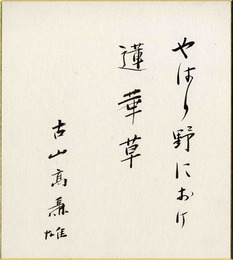 やはり野におけ
蓮華草
古山高麗雄